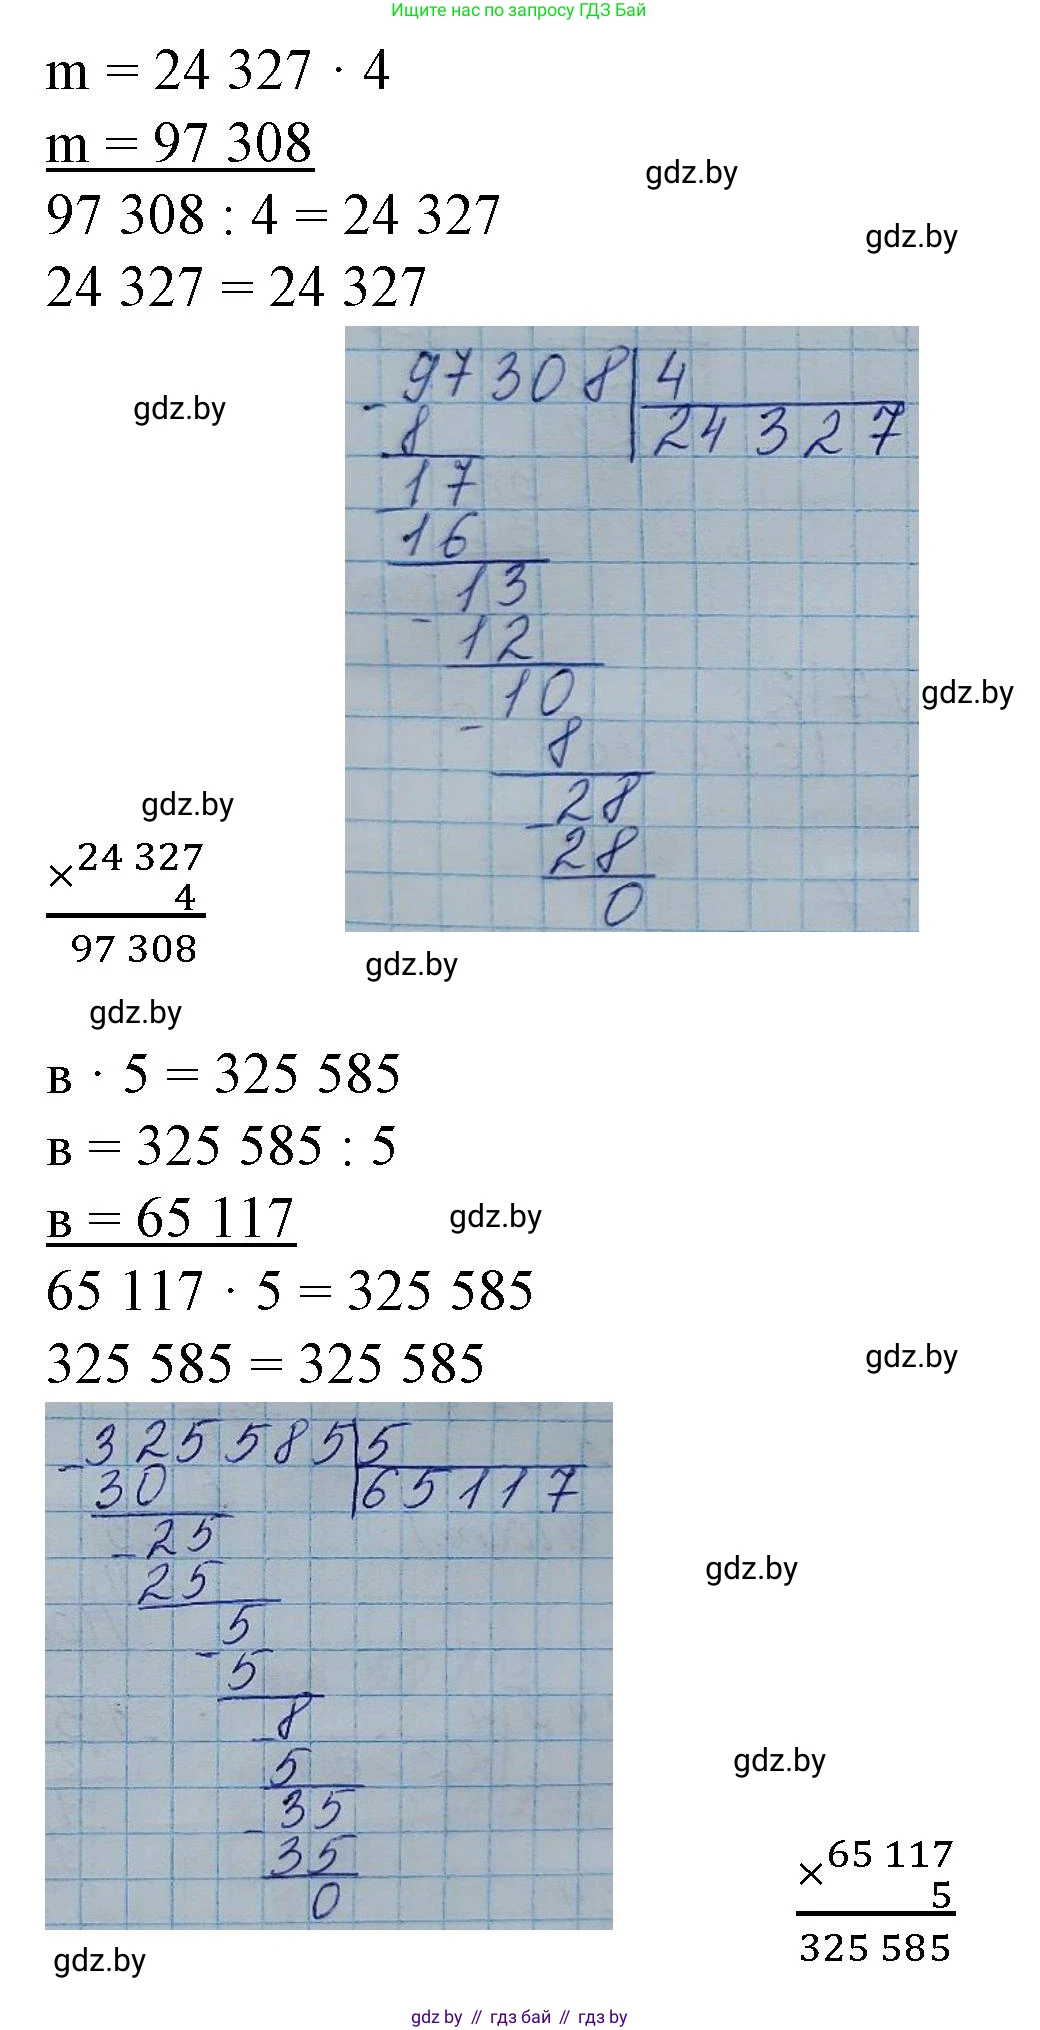 Ищите нас по запросу ГДЗ Бай
m = 24 327 · 4
m = 97 308
gdz.by
97 308 : 4 = 24 327
gdz.by
24 327 = 24 327
- 97308 | 4
8 24327
gdz.by
- 17
16
- 13
12
- 10
gdz.by
8
- 28
28
0
gdz.by
× 24 327
4
97 308
gdz.by
gdz.by
в · 5 = 325 585
в = 325 585 : 5
в = 65 117
gdz.by
65 117 · 5 = 325 585
325 585 = 325 585
gdz.by
- 325585 | 5
30 65117
- 25
25
gdz.by
- 5
5
- 8
5
gdz.by
- 35
35
0
× 65 117
5
325 585
gdz.by
gdz by // гдз бай // гдз by